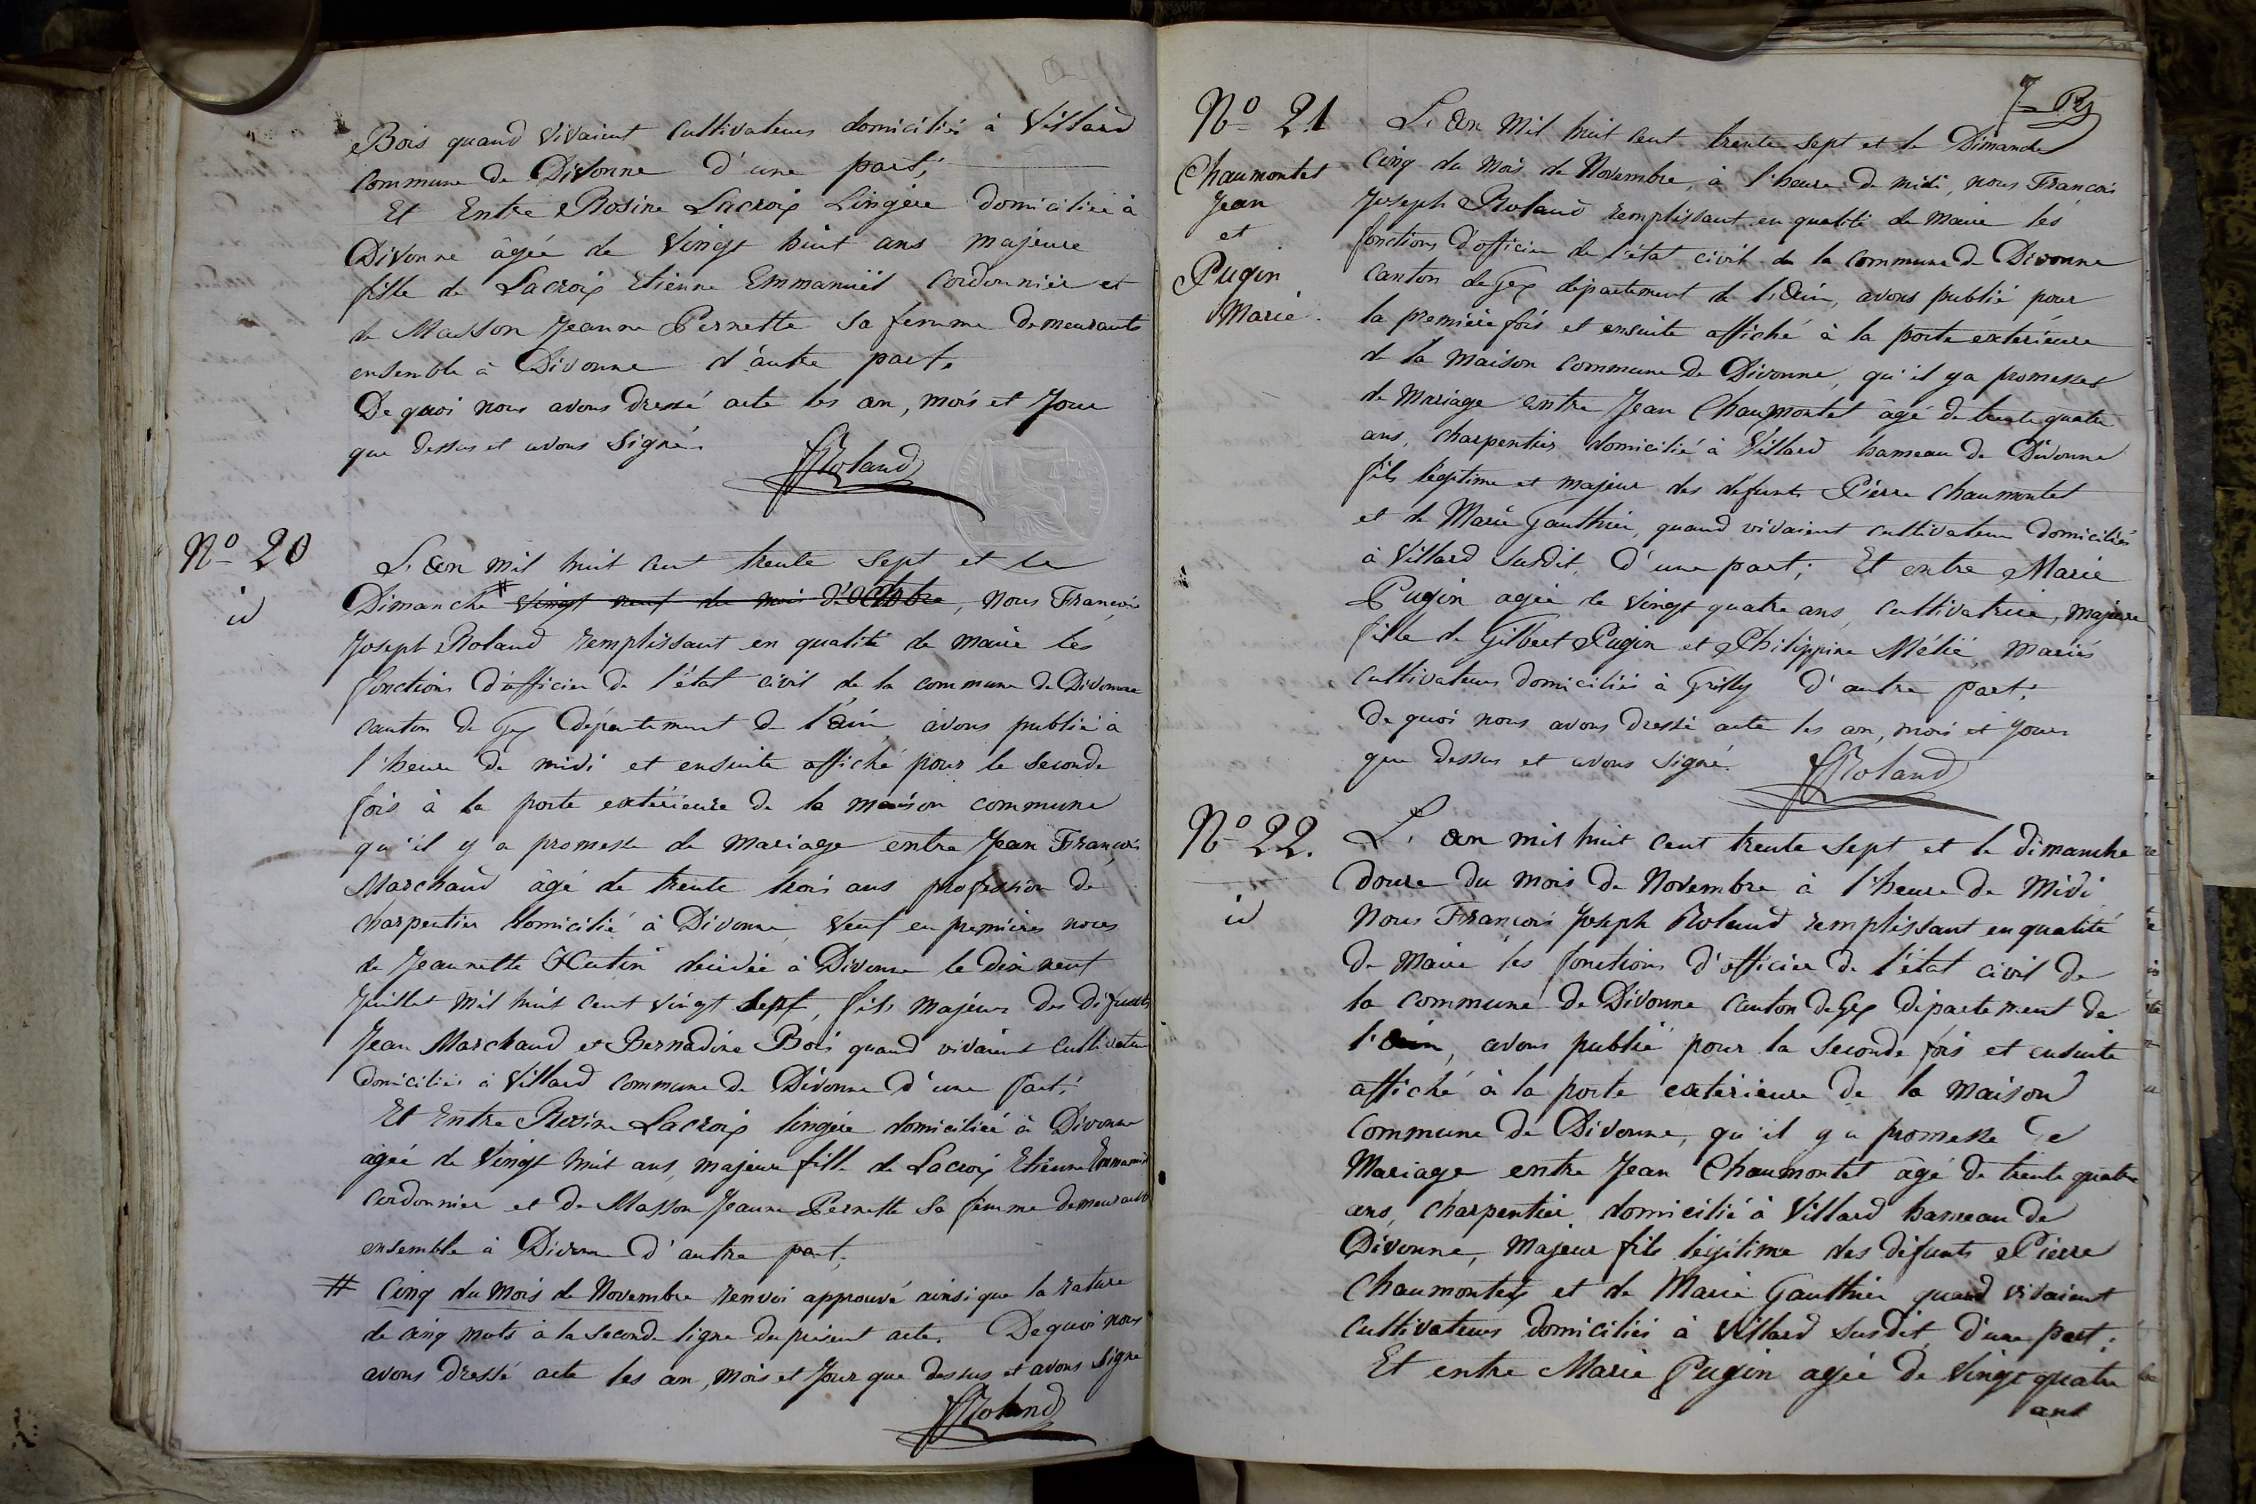 Bois quand vivaient cultivateurs domiciliés à Villard
commune de Divonne d'une part;
Et Entre Rosine Lacroix Lingère domiciliée à
Divonne âgée de vingt huit ans majeure
fille de Lacroix Etienne Emmanuël cordonnier et
de Masson Jeanne Pernette sa femme demeurants
ensemble à Divonne d'autre part.
De quoi nous avons dressé acte les an, mois et jour
que dessus et avons signé.
FRoland
No 20
id
L'an mil huit cent trente sept et le
Dimanche # vingt neuf du mois d'octobre, nous François
Joseph Roland remplissant en qualité de maire les
fonctions d'officier de l'état civil de la commune de Divonne
canton de Gex département de l'ain, avons publié à
l'heure de midi et ensuite affiché pour la seconde
fois à la porte extérieure de la maison commune
qu'il y a promesse de mariage entre Jean François
Marchand âgé de trente trois ans profession de
charpentier domicilié à Divonne, veuf en premières noces
de Jeannette Hutin décédée à Divonne le dix neuf
Juillet mil huit cent vingt sept, fils majeur des défunts
Jean Marchand et Bernadine Bois quand vivaient cultivateurs
domiciliés à Villard commune de Divonne d'une part;
Et Entre Rosine Lacroix lingère domiciliée à Divonne
agée de vingt huit ans, majeure fille de Lacroix Etienne Emmanuël
cordonnier et de Masson Jeanne Pernette sa femme demeurants
ensemble à Divonne d'autre part,
# Cinq du mois de Novembre renvoi approuvé ainsi que la rature
de cinq mots à la seconde ligne du présent acte. De quoi nous
avons dressé acte les an, mois et jour que dessus et avons signé
FRoland
7
No 21
Chaumontet
Jean
et
Pugin
Marie.
L'an mil huit cent trente sept et le Dimanche
cinq du mois de Novembre, à l'heure de midi, nous François
Joseph Roland remplissant en qualité de maire les
fonctions d'officier de l'état civil de la commune de Divonne
canton de Gex département de l'Ain, avons publié pour
la première fois et ensuite affiché à la porte extérieure
de la maison commune de Divonne, qu'il y a promesses
de mariage entre Jean Chaumontet âgé de trente quatre
ans, charpentier domicilié à Villard hameau de Divonne
fils légitime et majeur des défunts Pierre Chaumontet
et de Marie Gauthier, quand vivaient cultivateurs domiciliés
à Villard susdit, d'une part; Et entre Marie
Pugin agée de vingt quatre ans, cultivatrice, majeure
fille de Gilbert Pugin et Philippine Mélié mariés
cultivateurs domiciliés à Grilly d'autre part;
De quoi nous avons dressé acte les an, mois et jour
que dessus et avons signé.
FRoland
No 22.
id
L'an mil huit cent trente sept et le dimanche
douze du mois de Novembre à l'heure de midi
Nous François Joseph Roland remplissant en qualité
de maire les fonctions d'officier de l'état civil de
la commune de Divonne canton de Gex département de
l'ain, avons publié pour la seconde fois et ensuite
affiché à la porte extérieure de la maison
commune de Divonne, qu'il y a promesse de
mariage entre Jean Chaumontet âgé de trente quatre
ans, charpentier domicilié à Villard hameau de
Divonne, majeur fils légitime des défunts Pierre
Chaumontet et de Marie Gauthier quand vivaient
cultivateurs domiciliés à Villard susdit, d'une part;
Et entre Marie Pugin agée de vingt quatre
ans